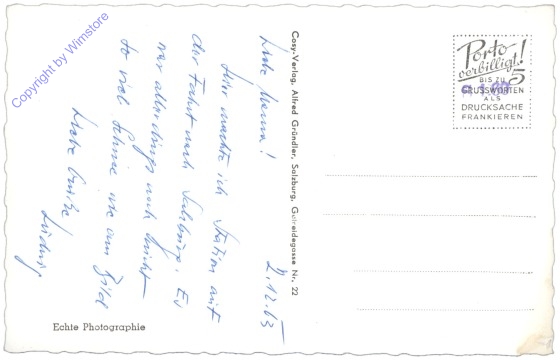 Copyright by Wimstore
2.12.63
Liebe Mama!
Hier machte ich Station auf
der Fahrt nach Salzburg. Es
war allerdings noch nicht
so viel Schnee wie am Bild
Liebe Grüße,
Ludwig
Echte Photographie
Cosy-Verlag, Alfred Gründler, Salzburg, Getreidegasse Nr. 22
Porto
verbilligt!
BIS ZU 5
GRUSSWORTEN
ALS
DRUCKSACHE
FRANKIEREN